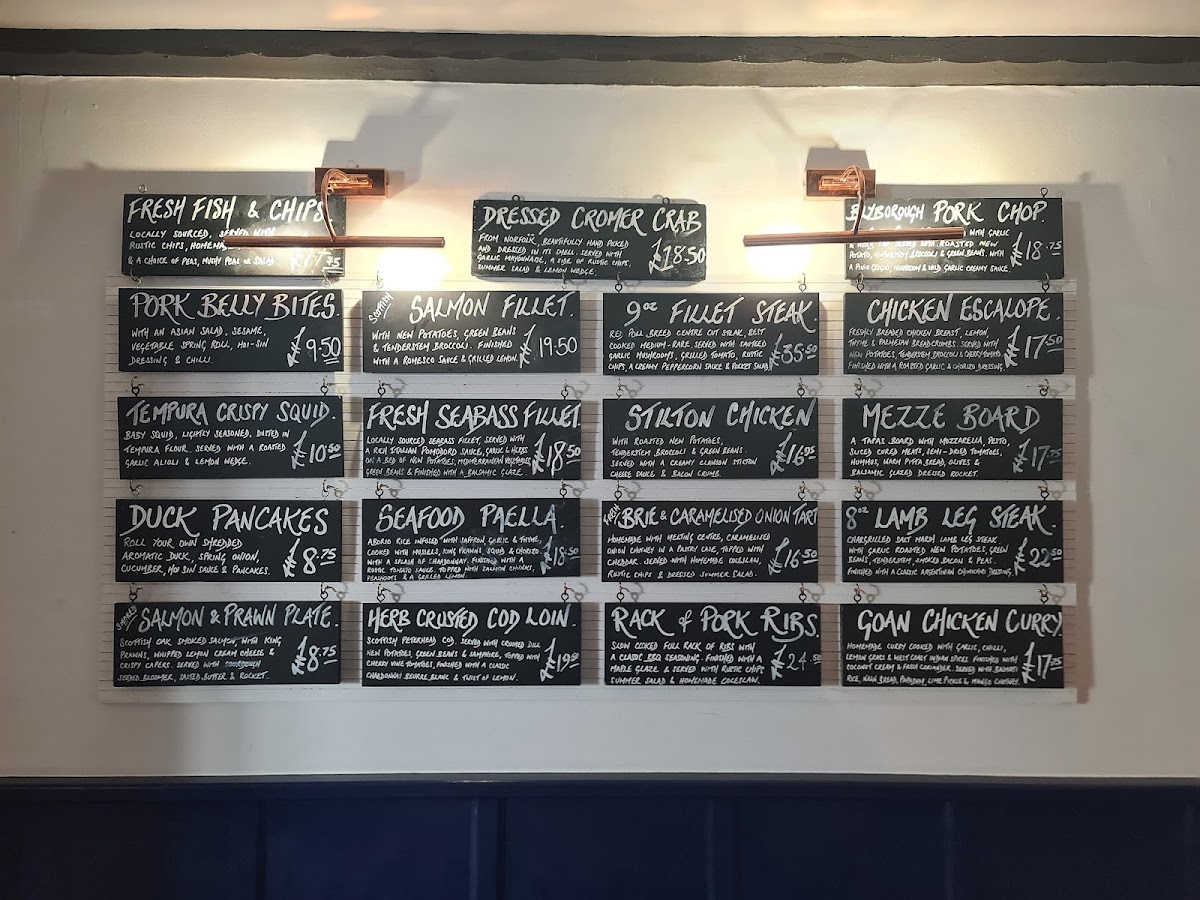 FRESH FISH & CHIPS
LOCALLY SOURCED, SERVED WITH
RUSTIC CHIPS, HOMEMA
& A CHOICE OF PEAS, MUSHY PEAS OR SALAD.
DRESSED CROMER CRAB
FROM NORFOLK, BEAUTIFULLY HAND PICKED
AND DRESSED IN ITS SHELL. SERVED WITH
GARLIC MAYONNAISE, A SIDE OF RUSTIC CHIPS,
SUMMER SALAD & LEMON WEDGE.
£18.50
PORK CHOP.
WITH GARLIC
ROASTED NEW
POTATO, TENDERSTEM BROCCOLI & GREEN BEANS. WITH
A PINOT GRIGIO, MUSHROOM & WILD GARLIC CREAMY SAUCE.
£18.75
PORK BELLY BITES.
WITH AN ASIAN SALAD, SESAME,
VEGETABLE SPRING ROLL, HOI-SIN
DRESSING & CHILLI.
£9.50
SCOTTISH SALMON FILLET.
WITH NEW POTATOES, GREEN BEANS
& TENDERSTEM BROCCOLI. FINISHED
WITH A ROMESCO SAUCE & GRILLED LEMON.
£19.50
9OZ FILLET STEAK.
RED POLL BREED CENTRE CUT STEAK, BEST
COOKED MEDIUM-RARE. SERVED WITH SAUTEED
GARLIC MUSHROOMS, GRILLED TOMATO, RUSTIC
CHIPS, A CREAMY PEPPERCORN SAUCE & ROCKET SALAD
£35.50
CHICKEN ESCALOPE.
FRESHLY BREADED CHICKEN BREAST, LEMON,
THYME & PARMESAN BREADCRUMBS. SERVED WITH
NEW POTATOES, TENDERSTEM BROCCOLI & CHERRY TOMATOES.
FINISHED WITH A ROASTED GARLIC & CHORIZO DRESSING
£17.50
TEMPURA CRISPY SQUID.
BABY SQUID, LIGHTLY SEASONED, DUSTED IN
TEMPURA FLOUR. SERVED WITH A ROASTED
GARLIC AIOLI & LEMON WEDGE.
£10.50
FRESH SEABASS FILLET.
LOCALLY SOURCED SEABASS FILLET, SERVED WITH
A RICH ITALIAN POMODORO SAUCE, GARLIC & HERBS
ON A BED OF NEW POTATOES, MEDITERRANEAN VEGETABLES,
GREEN BEANS & FINISHED WITH A BALSAMIC GLAZE.
£18.50
STILTON CHICKEN
WITH ROASTED NEW POTATOES,
TENDERSTEM BROCCOLI & GREEN BEANS.
SERVED WITH A CREAMY CLAWSON STILTON
CHEESE SAUCE & BACON CRUMB.
£16.95
MEZZE BOARD
A TAPAS BOARD WITH MOZZARELLA, PESTO,
SLICED CURED MEATS, SEMI-DRIED TOMATOES,
HUMMUS, WARM PITTA BREAD, OLIVES &
BALSAMIC GLAZED DRESSED ROCKET.
£17.75
DUCK PANCAKES
ROLL YOUR OWN SHREDDED
AROMATIC DUCK, SPRING ONION,
CUCUMBER, HOI SIN SAUCE & PANCAKES.
£8.75
SEAFOOD PAELLA.
ABORIO RICE INFUSED WITH SAFFRON, GARLIC & THYME,
COOKED WITH MUSSELS, KING PRAWNS, SQUID & CHORIZO
WITH A SPLASH OF CHARDONNAY. FINISHED WITH A
RUSTIC TOMATO SAUCE. TOPPED WITH SALMON CHUNKS,
& A GRILLED LEMON.
£18.50
FRESH BRIE & CARAMELISED ONION TART
HOMEMADE WITH MELTING CENTRE, CARAMELISED
ONION CHUTNEY IN A PASTRY CASE, TOPPED WITH
CHEDDAR. SERVED WITH HOMEMADE COLESLAW,
RUSTIC CHIPS & DRESSED SUMMER SALAD.
£16.50
8OZ LAMB LEG STEAK.
CHARGRILLED SALT MARSH LAMB LEG STEAK
WITH GARLIC ROASTED NEW POTATOES, GREEN
BEANS, TENDERSTEM, SMOKED BACON & PEAS.
FINISHED WITH A CLASSIC ARGENTINIAN CHIMICHURRI DRESSING.
£22.50
SMOKED SALMON & PRAWN PLATE.
SCOTTISH OAK SMOKED SALMON, WITH KING
PRAWNS, WHIPPED LEMON CREAM CHEESE &
CRISPY CAPERS. SERVED WITH SOURDOUGH
SEEDED BLOOMER, SALTED BUTTER & ROCKET.
£8.75
HERB CRUSTED COD LOIN.
SCOTTISH PETERHEAD COD. SERVED WITH CRUSHED DILL
NEW POTATOES, GREEN BEANS & SAMPHIRE, TOPPED WITH
CHERRY VINE TOMATOES, FINISHED WITH A CLASSIC
CHARDONNAY BEURRE BLANC & TWIST OF LEMON.
£19.50
RACK OF PORK RIBS.
SLOW COOKED FULL RACK OF RIBS WITH
A CLASSIC BBQ SEASONING. FINISHED WITH A
MAPLE GLAZE & SERVED WITH RUSTIC CHIPS
SUMMER SALAD & HOMEMADE COLESLAW.
£24.50
GOAN CHICKEN CURRY
HOMEMADE CURRY COOKED WITH GARLIC, CHILLI,
LEMON GRASS & WEST COAST INDIAN SPICES. FINISHED WITH
COCONUT CREAM & FRESH CORIANDER. SERVED WITH BASMATI
RICE, NAAN BREAD, PAPADUM, LIME PICKLE & MANGO CHUTNEY.
£17.75